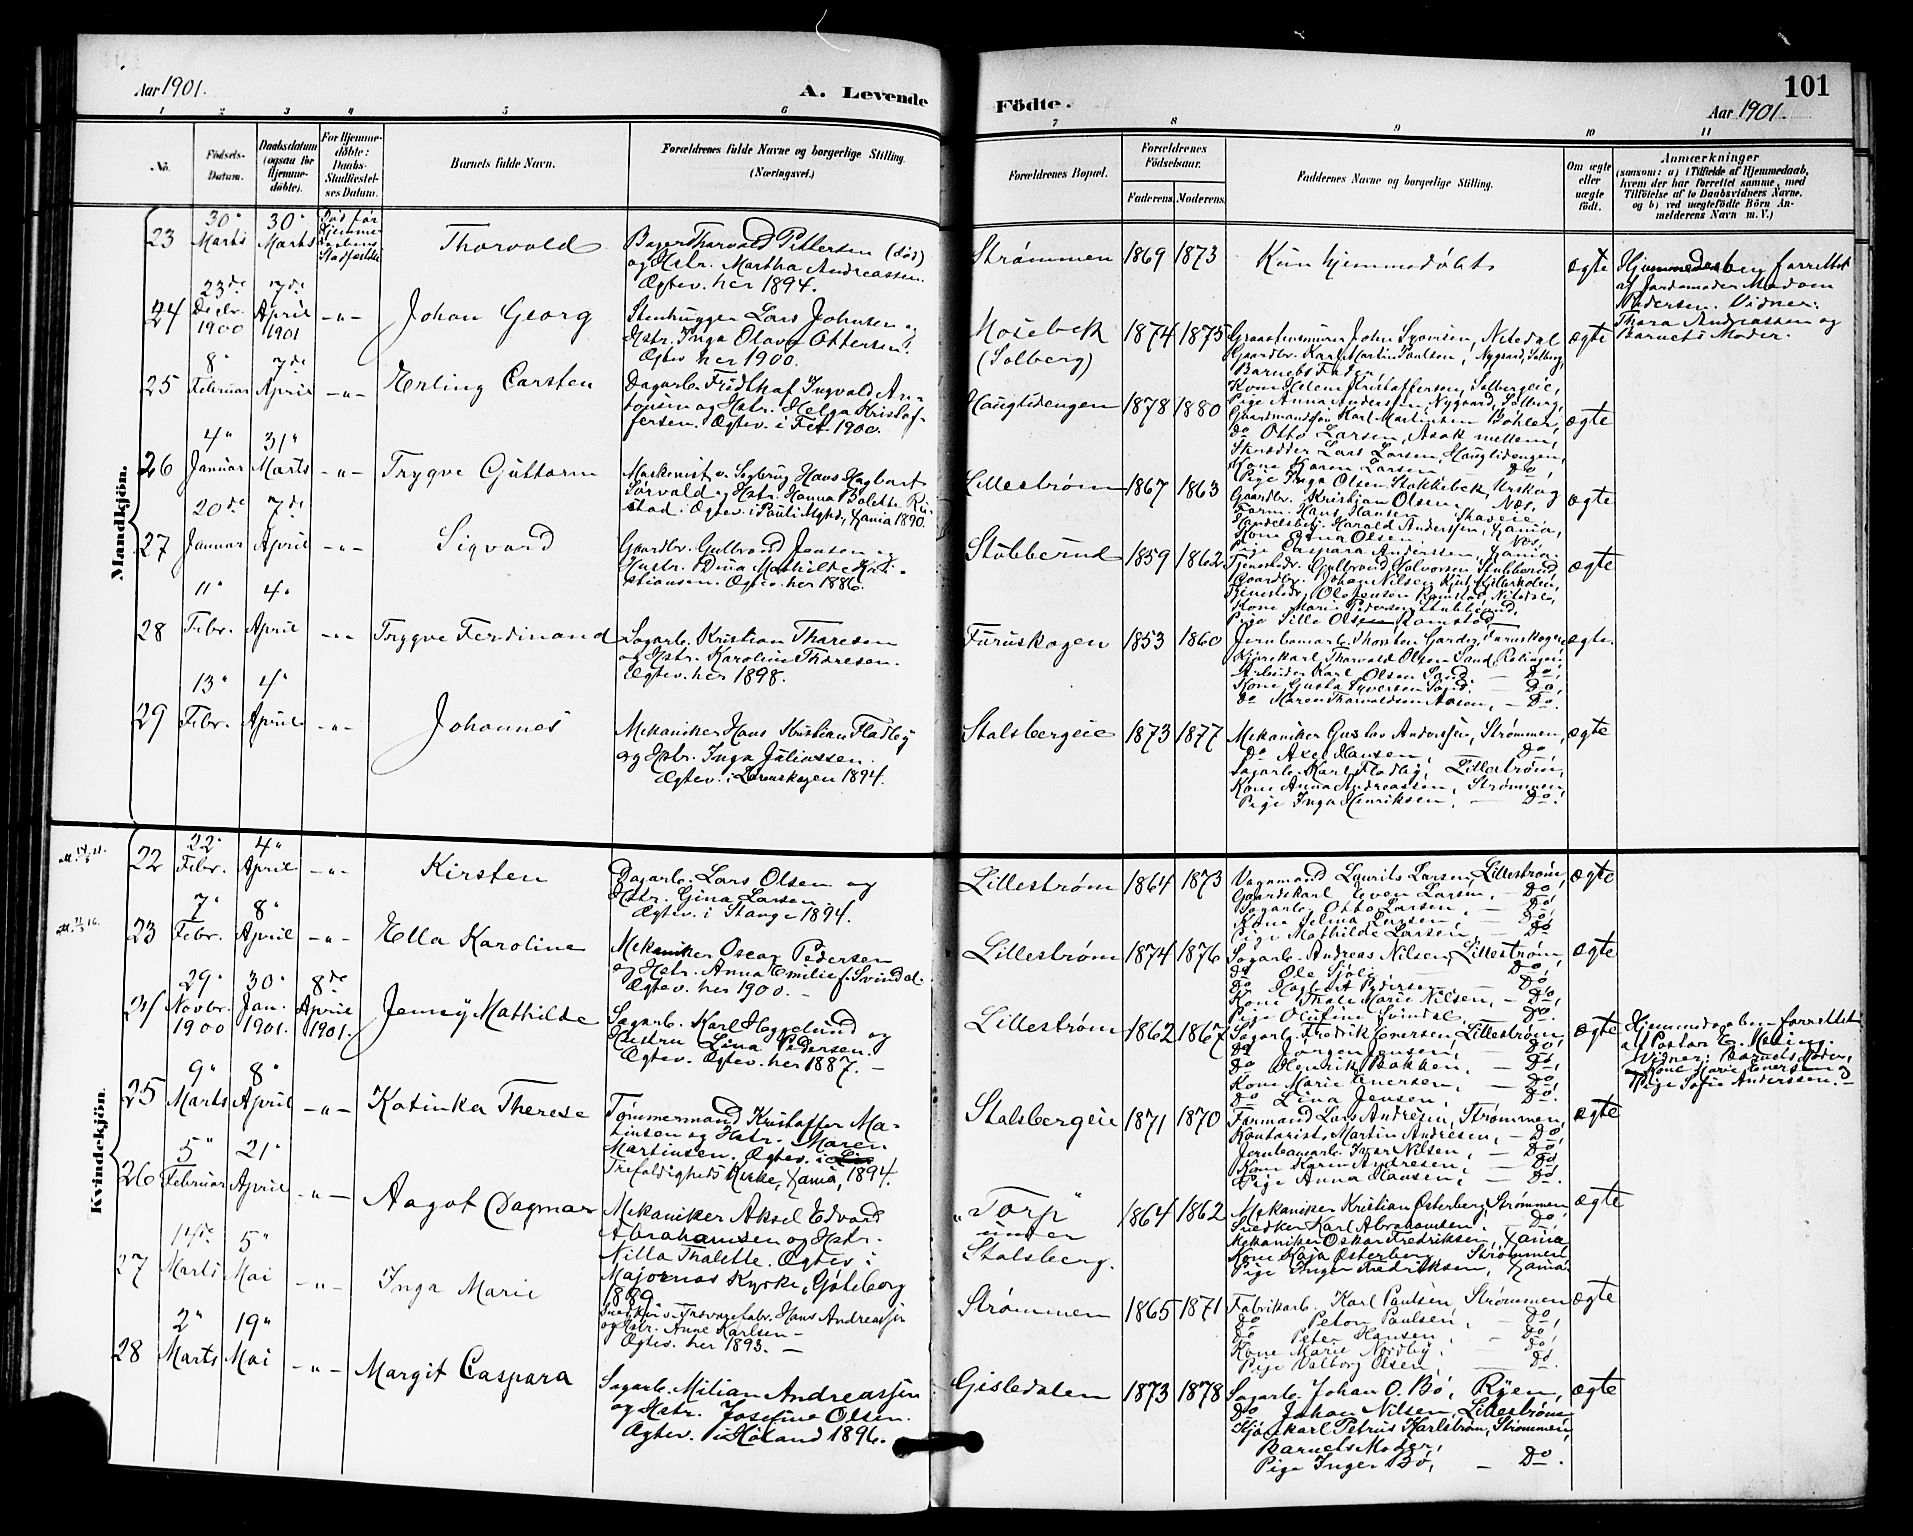 Aar 1901.
A. Levende
Födte.
101
Aar 1901.
1 2 3 4 5 6 7 8 9 10 11
No.
Födsels-Datum.
Daabsdatum (ogsaa for Hjemme-döbte).
For Hjemme-döbte: Daabs-Stadfæstel-ses Datum.
Barnets fulde Navn.
Forældrenes fulde Navne og borgerlige Stilling.
(Næringsvei.)
Forældrenes Bopæl.
Forældrenes Födselsaar.
Faderens.
Moderens.
Faddernes Navne og borgerlige Stilling.
Om ægte eller uægte födt.
Anmærkninger
(saasom: a) i Tilfælde af Hjemmedaab,
hvem der har forrettet samme, med
Tilföielse af to Daabsvidners Navne,
og b) ved uægtefödte Börn An-
melderens Navn m. V.)
Mandkjön.
23
30" Marts
30" Marts
Død før Hjemme-daabens Stadfæstelse
Thorvald
Bager Thorvald Pettersen (død)
og Hstr. Martha Andreassen.
Ægtev. her 1894.
Strømmen
1869 1873
Kun hjemmedøbt
ægte
Hjemmedaaben forrettet
af Jordemoder Madam
Pedersen. Vidner:
Thora Andreassen og
Barnets Moder.
24
23de Decbr. 1900
7de April 1901
-"-
Johan Georg
Stenhugger Lars Johnsen og
Hstr. Inga Olava Ottersen.
Ægtev her 1900.
Mosebek
(Solberg)
1874 1875
Graastensmurer John Syversen, Nitedal
Gaardbr. Karl Martin Paulsen, Nygaard, Solberg,
Barnets Fader,
Kone Helene Kristoffersen, Solbergeie,
Pige Anna Andersen, Nygaard, Solberg,
ægte
25
8" Februar
7de April
-"-
Erling Carsten
Dagarb. Fridthof Ingvald An-
tonsen og Hstr. Helga Kristof-
fersen. Ægtev. i Fet 1900.
Haugtidengen
1878 1880
Gaardmandssøn Karl Martinsen Bøhler,
do Otto Larsen, Asak mellem,
Skrædder Lars Larsen, Haugtidengen,
Kone Karen Larsen — Do,
Pige Inga Olsen Stokkebek, Urskog
ægte
26
4" Januar
31" Marts
-"-
Trygve Guttorm
Maskenist v. Sagbrug Hans Hagbart
Sørvald og Hstr. Hanna Bolette Ru-
stad. Ægtev. i Pauli Mghd, Xania 1890.
Lillestrøm
1867 1863
Gaardbr. Kristian Olsen, Næs,
Form. Hans Hansen
Handelsbetj. Harald Anderssen, Xania,
Kone Anna Olsen, Næs,
Pige Caspara Anderssen, Xania.
ægte
27
20de Januar
7de April
-"-
Sigvard
Gaardbr. Gulbrand Jensen og
Hustr. Dina Mathilde Kri-
stiansen. Ægtev. her 1886.
Stubberud
1859 1862
Tjenestedr. Gulbrand Halvorsen Stubberud
Gaardbr. Johan Nilsen
Tjenestedr. Ole Jensen Ramstad, Nitedal,
Kone Marie Pedersen Stubberud,
Pige Sille Olsen Ramstad,
ægte
28
11" Febr.
4" April
-"-
Trygve Ferdinand
Sagarb. Kristian Thoresen
og Hstr. Karoline Thoresen.
Ægtev. her 1898.
Furuskogen
1853 1860
Jernbanearb. Thorsten Garder, Furuskogen
Kjørekarl Thorvald Olsen Sand, Rælingen,
Arbeider Karl Olsen Sand. — Do,
Kone Gusta Syversen Sand. — Do,
do Maren Thorvaldsen Aasen, — Do.
ægte.
29
13" Febr.
4" April
-"-
Johannes
Mekaniker Hans Kristian Fladby
og Hstr. Inga Juliussen.
Ægtev. i Lørenskogen 1894.
Stalsbergeie
1873 1877
Mekaniker Gustav Anderssen, Strømmen,
Do Axel Hansen, Do,
Sagarb. Karl Fladby, Lillestrøm,
Kone Anna Andreassen, Strømmen,
Pige Inga Henriksen, — Do.
ægte
Kvindekjön.
22
22" Febr.
4" April
-"-
Kirsten
Dagarb. Lars Olsen og
Hstr. Gina Larsen.
Ægtev. i Stange 1894.
Lillestrøm
1864 1873
Vognmand Laurits Larsen, Lillestrøm,
Gaardskarl Even Larsen, — Do,
Sagarb. Otto Larsen, — Do,
Kone Selma Larsen, — Do,
Pige Mathilde Larsen, — Do
ægte
23
7" Febr.
8" April
-"-
Ella Karoline
Mekaniker Oscar Pedersen
og Hstr. Anna Emilie f. Svindal.
Ægtev. her 1900. —
Lillestrøm
1874 1876
Sagarb. Andreas Nilsen, Lillestrøm,
do Ole Sjøli — Do,
do Hagbart Pedersen — Do,
Kone Thale Marie Nilsen, — Do,
Pige Olufine Svindal — Do.
ægte
24
29" Novbr. 1900
30" Jan. 1901.
8de April 1901.
Jenny Mathilde
Sagarb. Karl Heggelund og
Hustru Lina Pedersen.
Ægtev. Ægtev. her 1887. —
Lillestrøm
1862 1867
Sagarb. Fredrik Enersen, Lillestrøm,
Do Jørgen Jensen, Do,
do Henrik Bakken, — Do,
Kone Marie Enersen, — Do,
do Lina Jensen, — Do.
ægte
Hjemmedaaben forrettet
af Pastor E. Melling.
Vidner: Barnets Moder,
Kone Marie Enersen og
Pige Sofie Anderssen. —
25
9" Marts
8" April
-"-
Katinka Therese
Tømmermand Kristoffer Ma-
tinsen og Hstr. Maren
Martinsen. Ægtev. i
Trefoldigheds Kirke, Xania, 1894.
Stalsbergeie
1871 1870
Formand Lars Andresen, Strømmen,
Kontorist Martin Andresen, — Do,
Jernbanearb. Ivar Nilsen, — Do,
Kone Karen Andresen, — Do,
Pige Anna Hansen, — Do.
ægte
26
5" Februar
21" April
-"-
Aagot Dagmar
Mekaniker Aksel Edvard
Abrahamsen og Hstr.
Nilla Thalette. Ægtev. i
Majornas Kyrka, Gøteborg
1889
"Torp"
under
Stalsberg.
1864 1862
Mekaniker Kristian Østerberg, Strømmen
Snedker Karl Abrahamsen. — Do,
Mekaniker Oskar Fredriksen, Xania
Kone Kaja Østerberg Strømmen
Pige Inger Fredriksen, Xania.
ægte
27
14de Marts
5" Mai
-"-
Inga Marie
Snedker v. Trævarefabr. Hans Andreassen
og Hstr. Anne Karlsen —
Ægtev. her 1893. —
Strømmen
1865 1871
Fabrikarb. Karl Paulsen, Strømmen
do Peton Paulsen, — Do,
do Peter Hansen, — Do,
Kone Marie Nordby, — Do,
Pige Valborg Olsen, — Do.
ægte
28
2" Marts
19" Mai
-"-
Margit Caspara
Sagarb. Milian Andreassen
og Hstr. Josefine Olsen.
Ægtev. i Høland 1896.
Gisledalen
1873 1878
Sagarb. Johan O. Bø, Ryen,
do Johan Nilsen, Lillestrøm
Kjørekarl Petrus Karlstrøm, Strømmen,
Barnets Moder,
Pige Inger Bø, — Do.
ægte